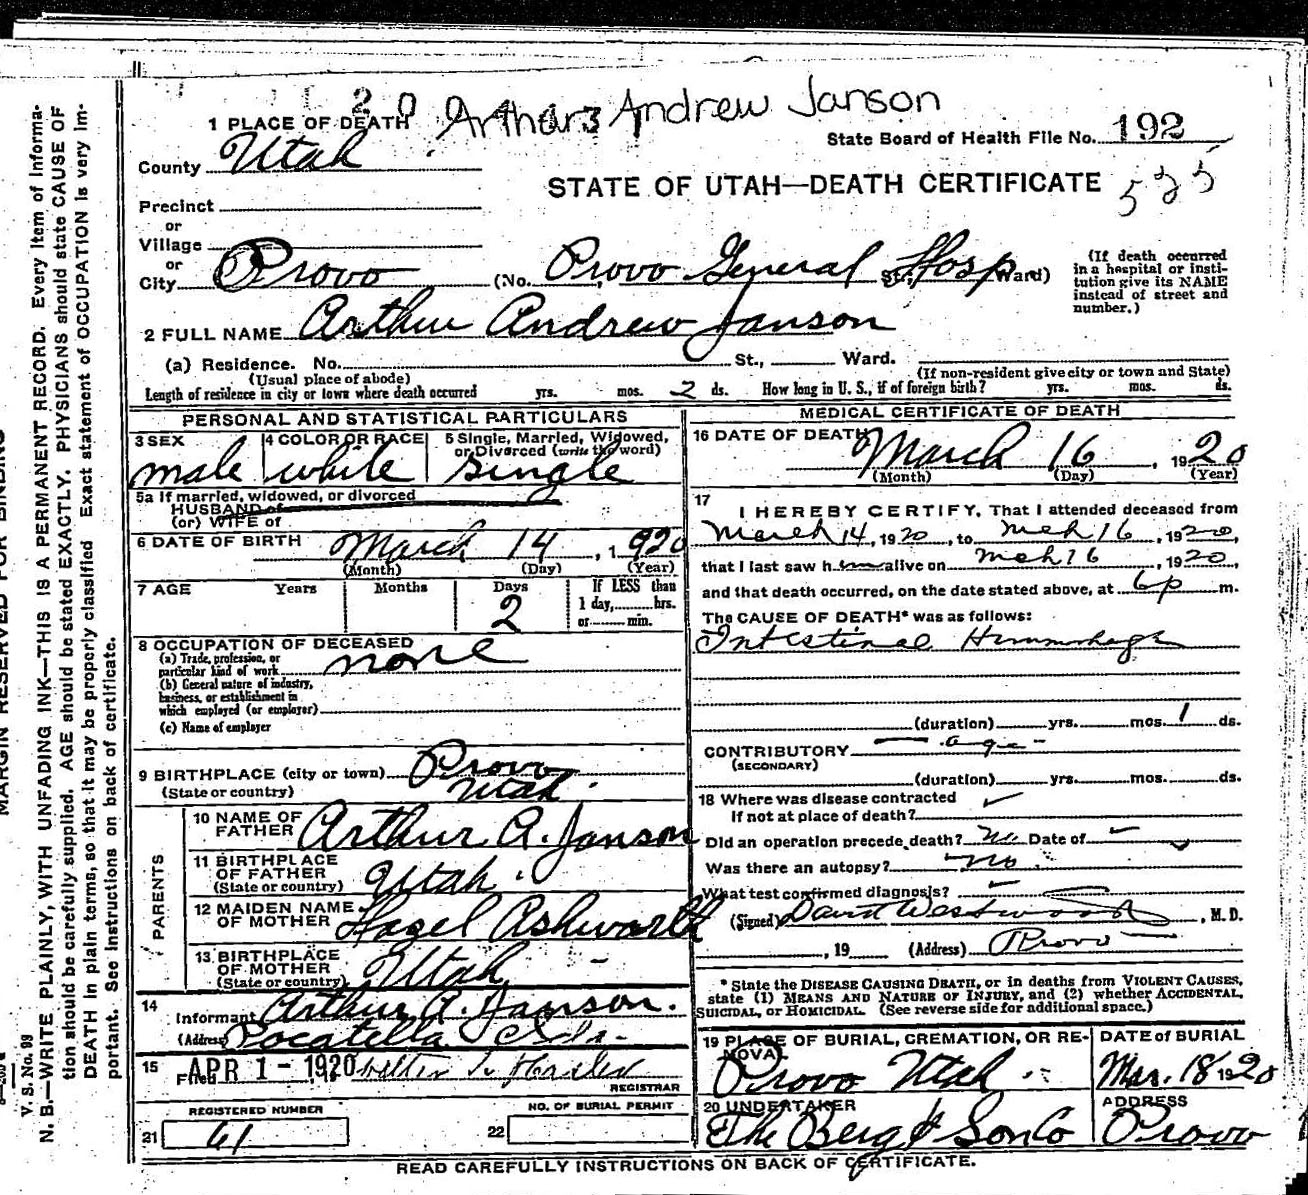 20 Arthur Andrew Janson
1 PLACE OF DEATH
State Board of Health File No. 192
County Utah
STATE OF UTAH—DEATH CERTIFICATE 525
Precinct
or
Village
or
City Provo (No. Provo General Hosp St., Ward)
(If death occurred in a hospital or institution give its NAME instead of street and number.)
2 FULL NAME Arthur Andrew Janson
(a) Residence. No. St., Ward.
(Usual place of abode) (If non-resident give city or town and State)
Length of residence in city or town where death occurred yrs. mos. 2 ds. How long in U. S., if of foreign birth? yrs. mos. ds.
PERSONAL AND STATISTICAL PARTICULARS
3 SEX male
4 COLOR OR RACE white
5 Single, Married, Widowed, or Divorced (write the word) single
5a If married, widowed, or divorced
HUSBAND of
(or) WIFE of
6 DATE OF BIRTH March 14, 1920
(Month) (Day) (Year)
7 AGE Years Months Days 2
If LESS than
1 day, hrs.
or min.
8 OCCUPATION OF DECEASED
(a) Trade, profession, or
particular kind of work none
(b) General nature of industry,
business, or establishment in
which employed (or employer)
(c) Name of employer
9 BIRTHPLACE (city or town) Provo
(State or country) Utah
PARENTS
10 NAME OF FATHER Arthur A. Janson
11 BIRTHPLACE OF FATHER
(State or country) Utah
12 MAIDEN NAME OF MOTHER Hazel Ashworth
13 BIRTHPLACE OF MOTHER
(State or country) Utah
14
Informant Arthur A. Janson.
(Address) Pocatella Ida.
15 Filed APR 1 - 1920
REGISTRAR
REGISTERED NUMBER
21 61
NO. OF BURIAL PERMIT
22
MEDICAL CERTIFICATE OF DEATH
16 DATE OF DEATH March 16, 1920
(Month) (Day) (Year)
17
I HEREBY CERTIFY, That I attended deceased from
March 14, 1920, to Mch 16, 1920,
that I last saw him alive on Mch 16, 1920,
and that death occurred, on the date stated above, at 6 p m.
The CAUSE OF DEATH* was as follows:
Intestinal Hemmorhage
(duration) yrs. mos. 1 ds.
CONTRIBUTORY - age -
(SECONDARY)
(duration) yrs. mos. ds.
18 Where was disease contracted
If not at place of death?
Did an operation precede death? No Date of
Was there an autopsy? No
What test confirmed diagnosis?
(Signed) David Westwood, M. D.
, 19 (Address) Provo
* State the DISEASE CAUSING DEATH, or in deaths from VIOLENT CAUSES,
state (1) MEANS AND NATURE OF INJURY, and (2) whether ACCIDENTAL,
SUICIDAL, or HOMICIDAL. (See reverse side for additional space.)
19 PLACE OF BURIAL, CREMATION, OR REMOVAL
Provo Utah
DATE OF BURIAL
Mar. 18 1920
20 UNDERTAKER
The Berg & Son Co
ADDRESS
Provo
READ CAREFULLY INSTRUCTIONS ON BACK OF CERTIFICATE.
MARGIN RESERVED FOR BINDING
V. S. No. 99
N. B.—WRITE PLAINLY, WITH UNFADING INK—THIS IS A PERMANENT RECORD. Every item of informa-
tion should be carefully supplied. AGE should be stated EXACTLY. PHYSICIANS should state CAUSE OF
DEATH in plain terms, so that it may be properly classified. Exact statement of OCCUPATION is very im-
portant. See Instructions on back of certificate.